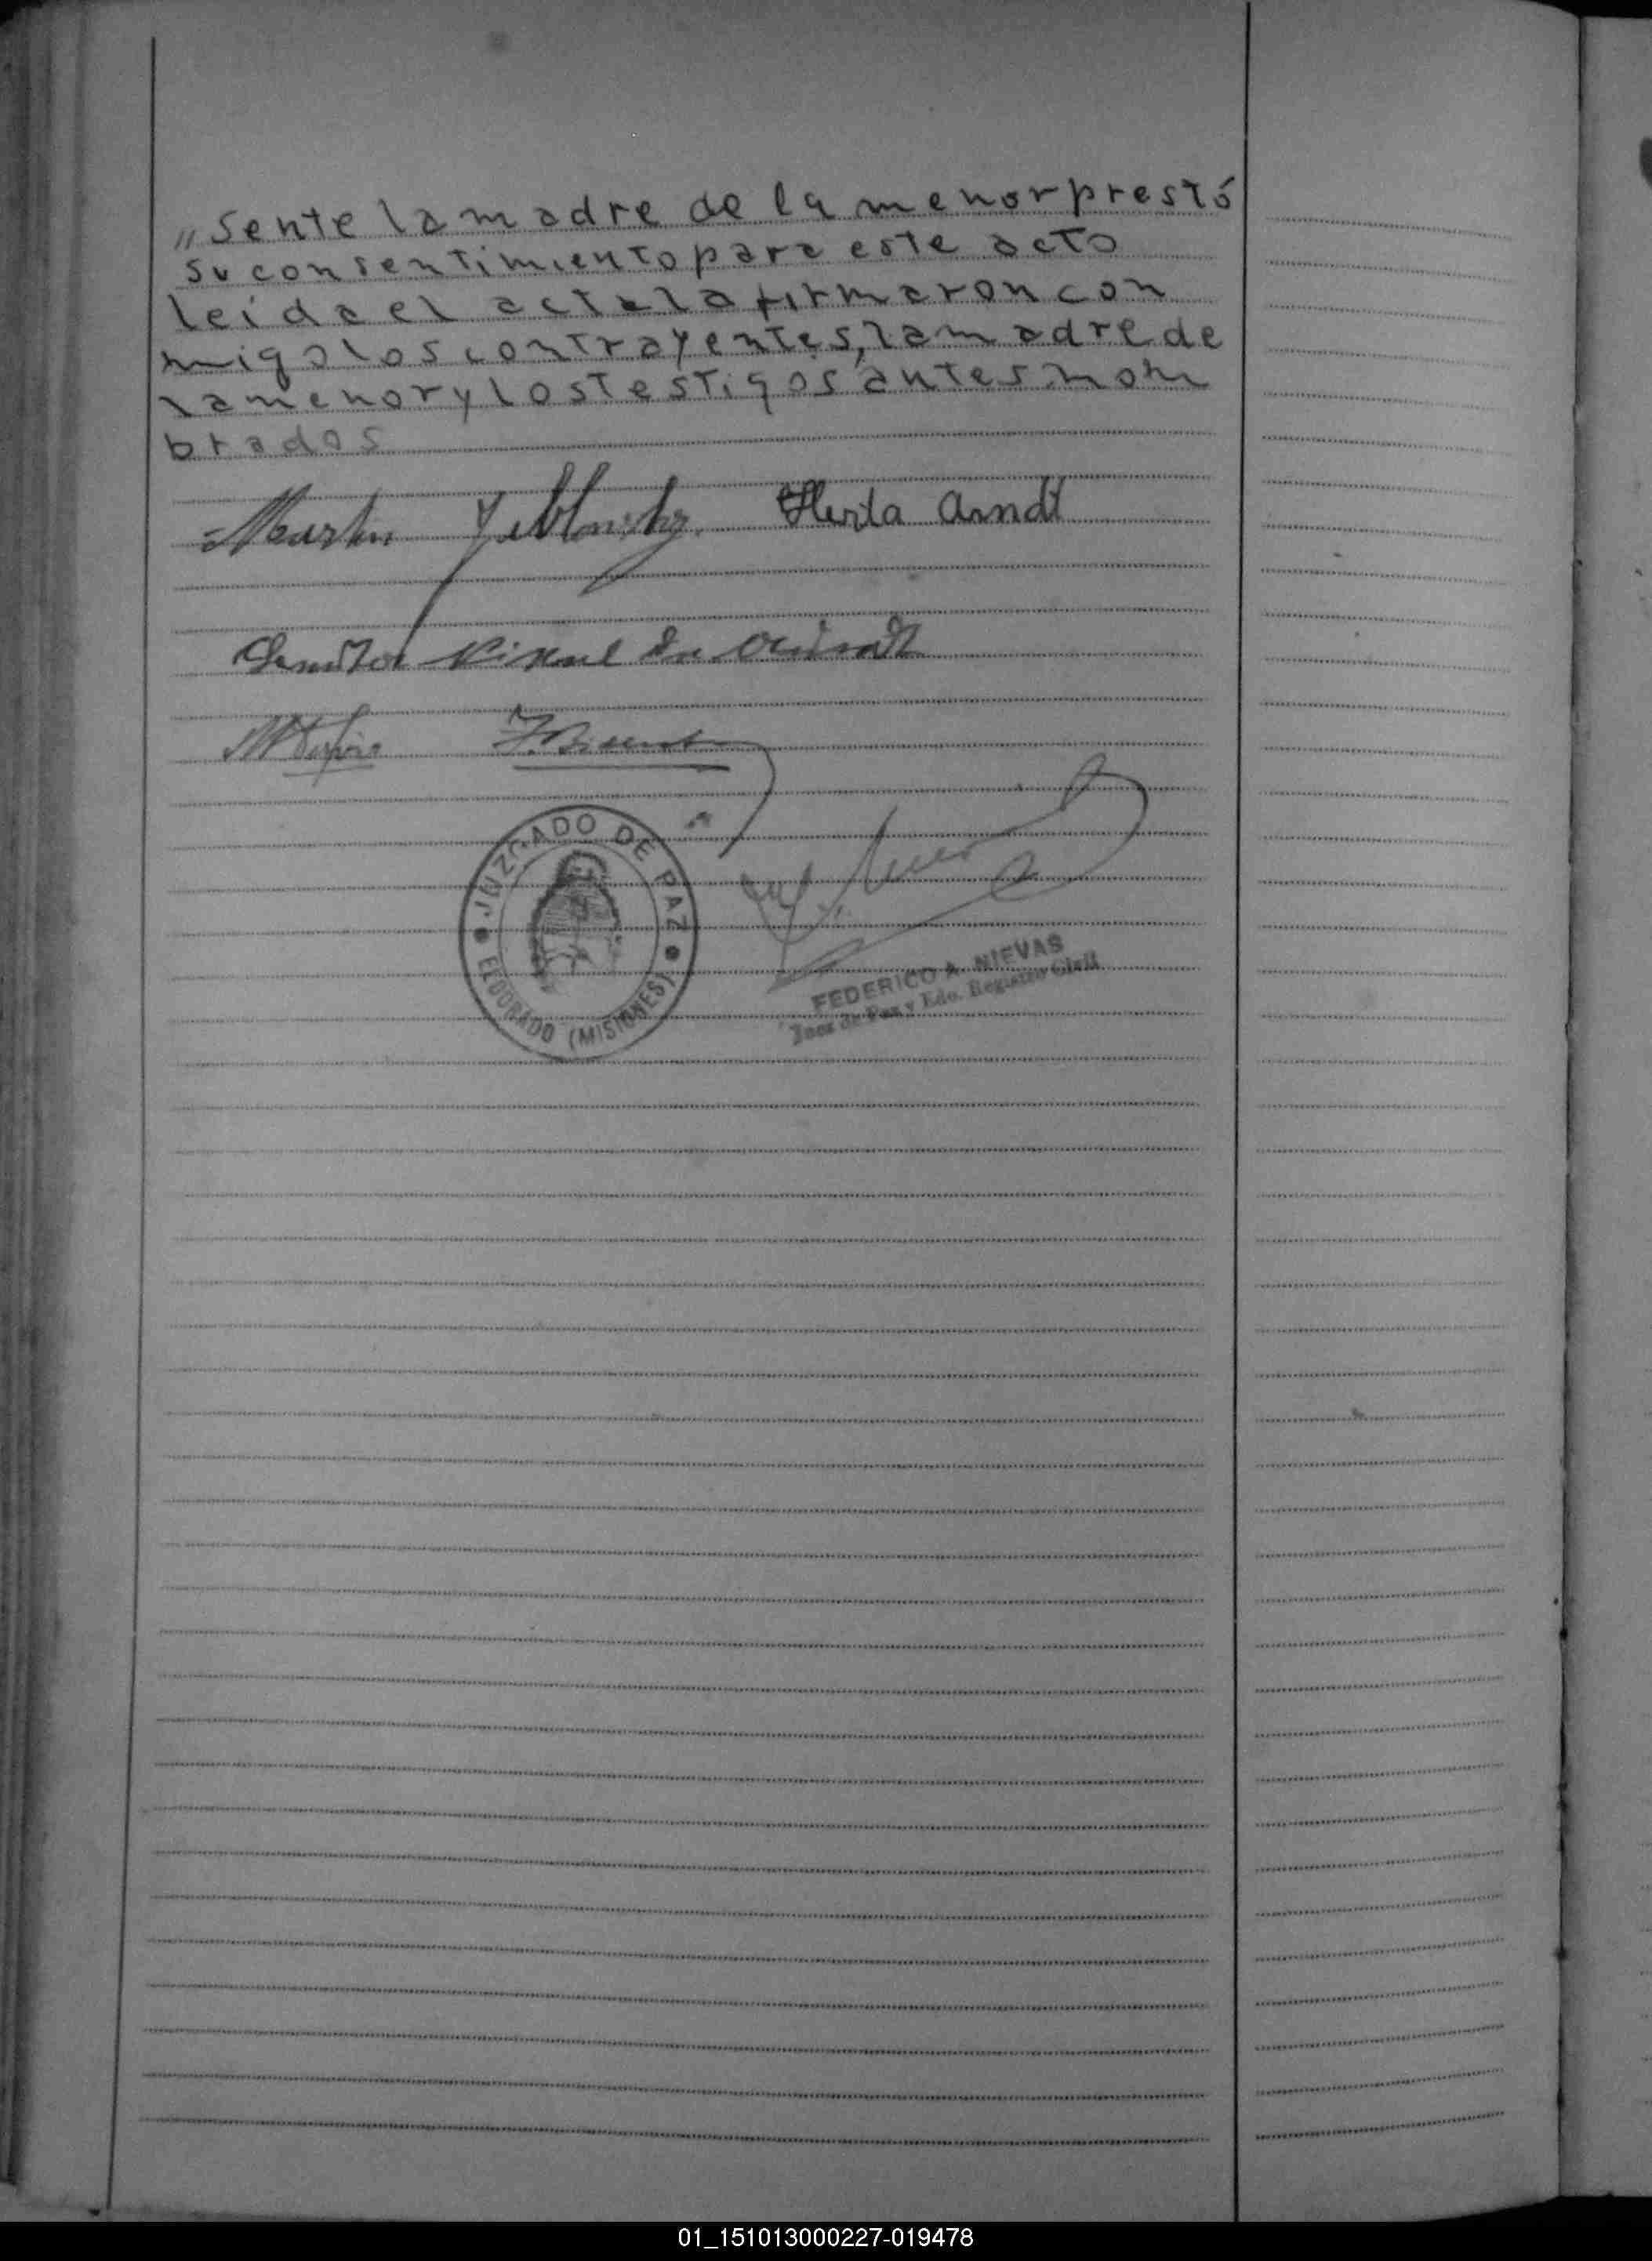 "sente la madre de la menor prestó
su consentimiento para este acto
leída el acta la firmaron con
migo los contrayentes, la madre de
la menor y los testigos antes nom
brados
Martin Herta Arndt
JUZGADO DE PAZ
ELDORADO (MISIONES)
FEDERICO A. NIEVAS
Juez de Paz y Edo. Registro Civil
01_151013000227-019478